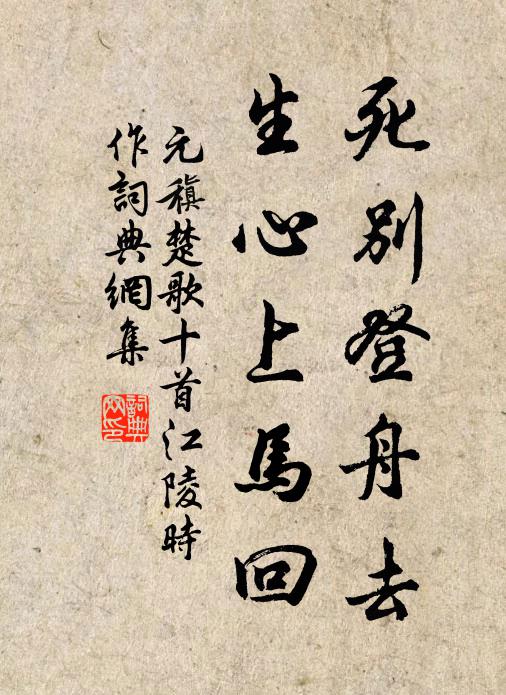 死别登舟去
生心上馬回
元稹楚歌十首江陵時
作詞典網集
詞典
网印